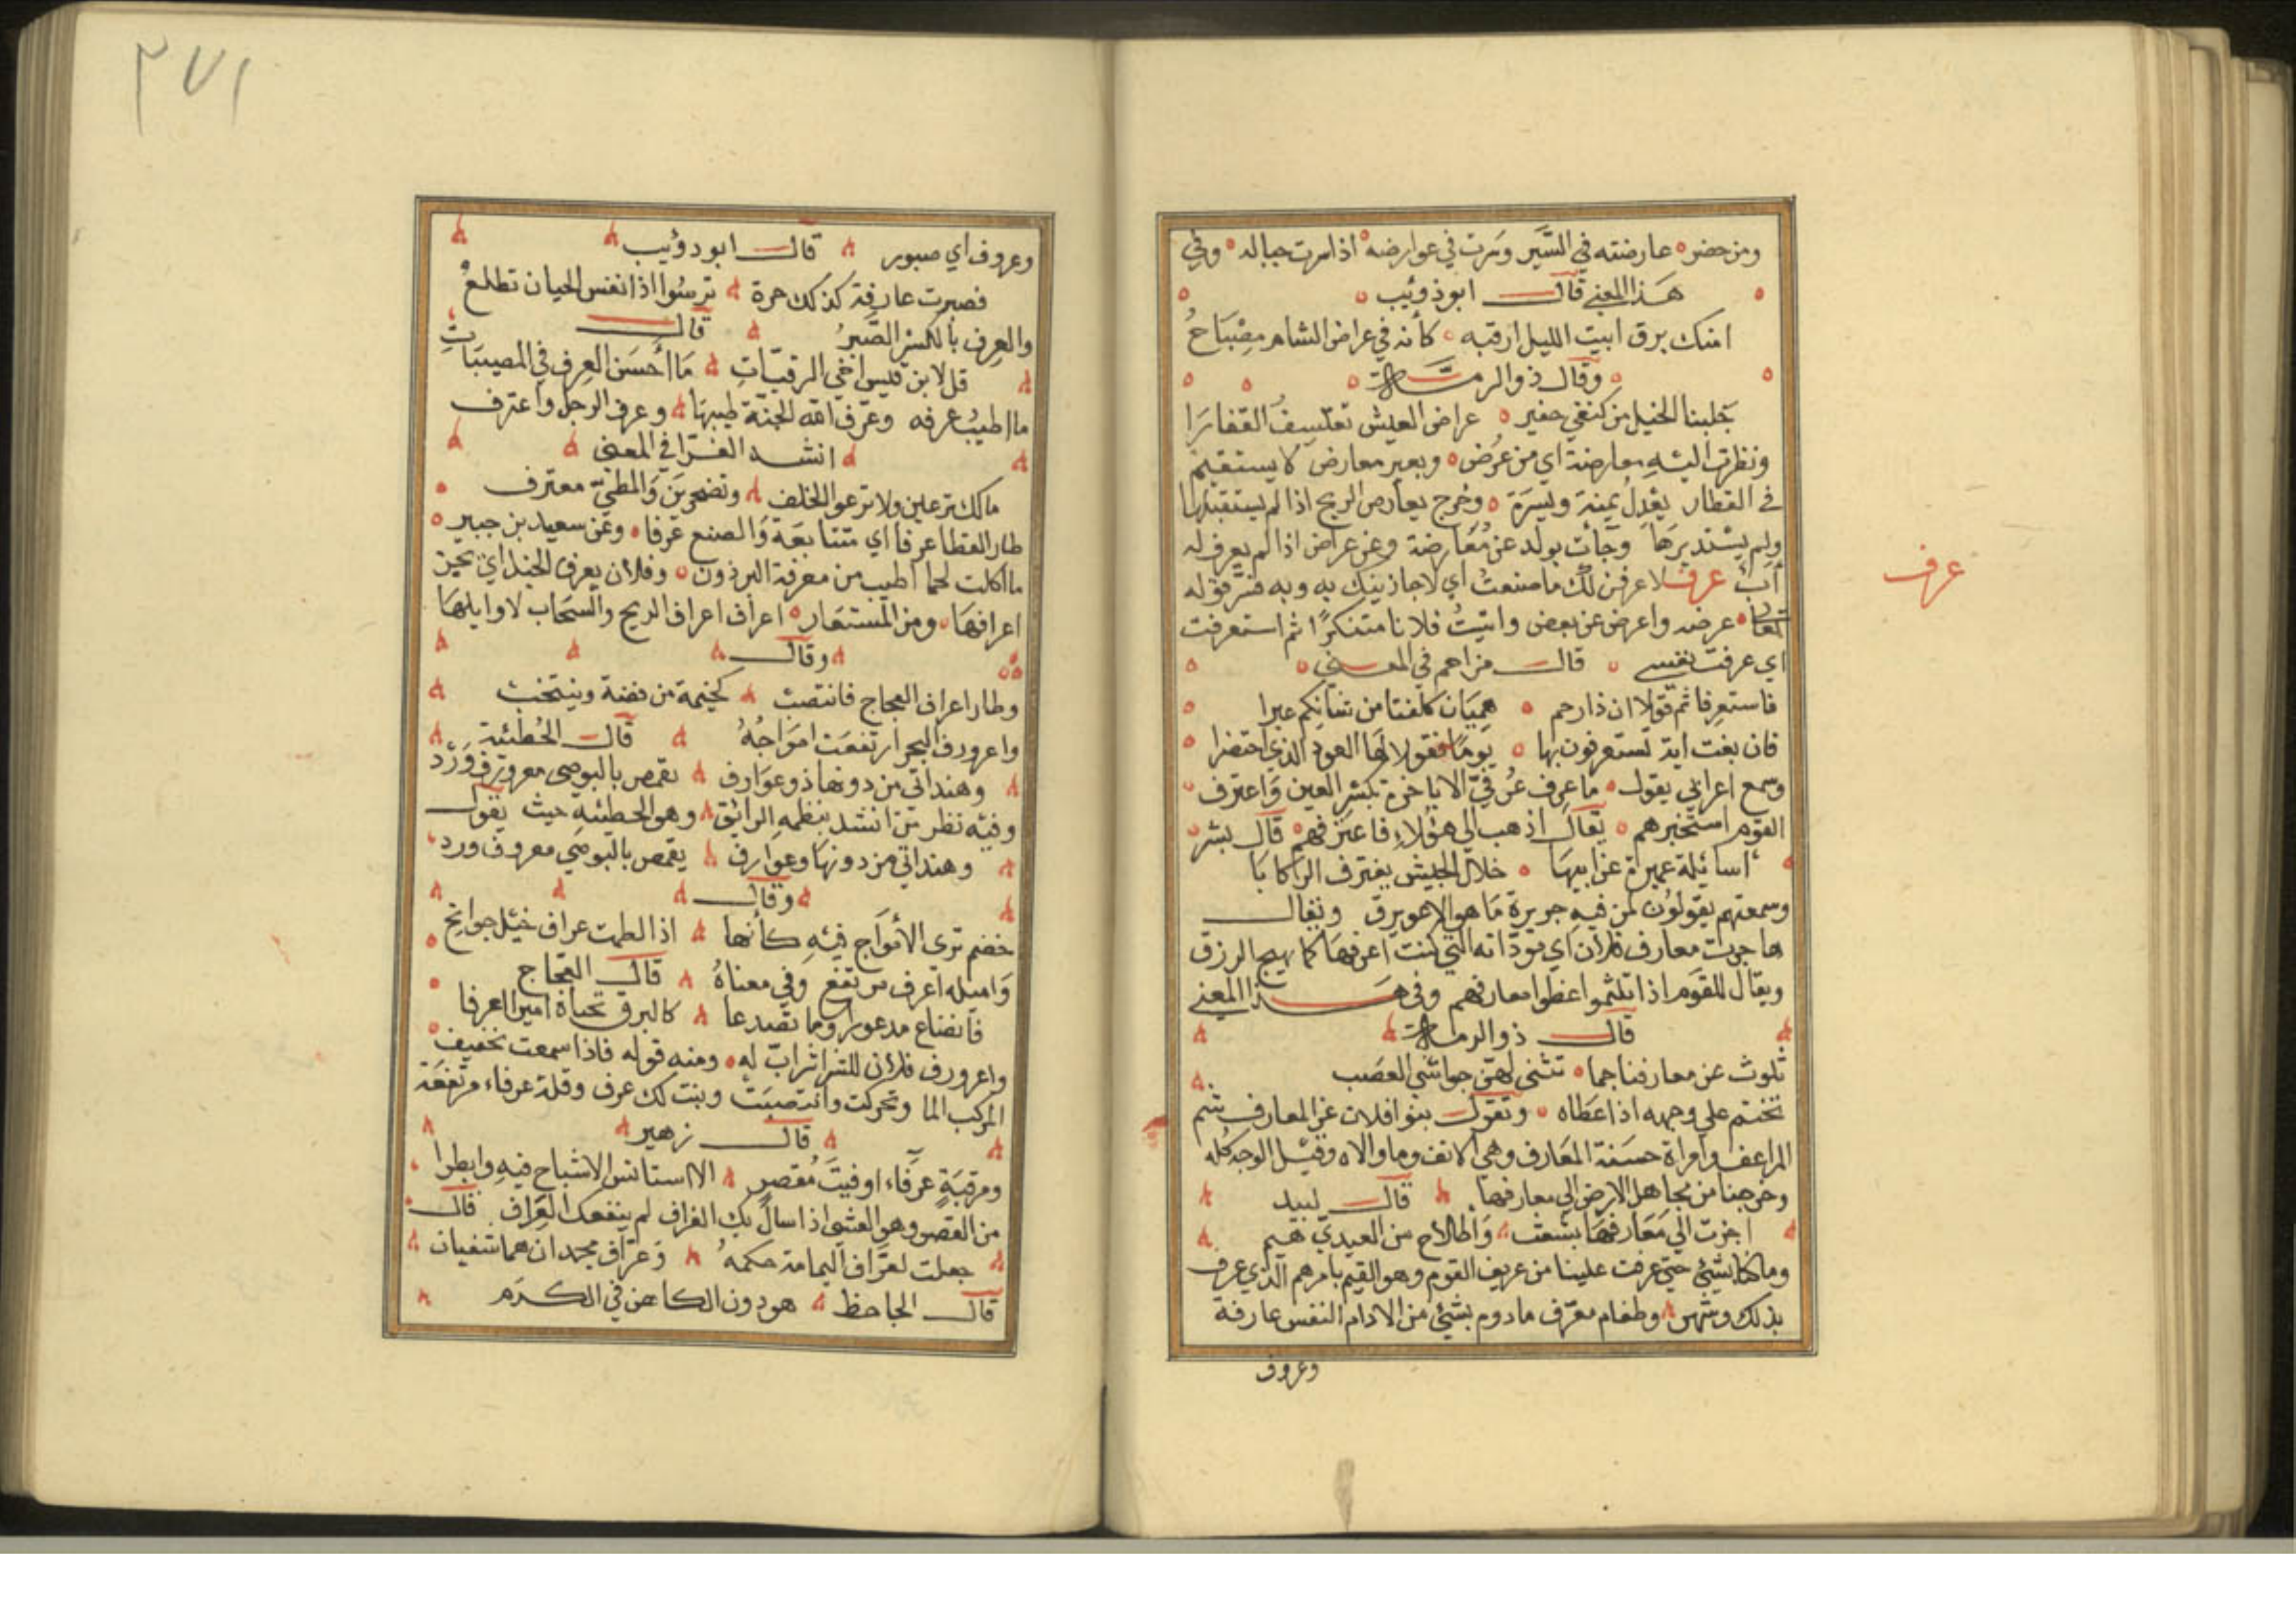 ومن حضر عارضته في السَّير وسرت في عوارضه اذا سرت حباله وفي
هذا المعني قال ابو ذؤيب
امنك برق ابيت الليل ارقبه كأنه في عراض الشام مصباحُ
وقال ذو الرمة
جلبنا الخيل من كنفي حفير عراض العيش تعتسفُ القفارَا
ونظرت اليْهِ معارضة اي من عُرُض وبعير معارض لا يستقيم
في القطار يعْدلُ يمنة ويسرَة وخرج يعارض الريح اذا لم يستقبلها
ولم يسْتدبرهَا وجأت بولد عن مُعَارضة وعن عراض اذا لم يعرف له
أبٌ عرف لاعرفن لك ما صنعتُ اي لاجازينك به وبه فسّر قوله
تعالى عرضه واعرض عن بعض واتيتُ فلانا متنكرًا ثم استعرفت
اي عرفت نفسي قال مزاحم في المعني
فاستعرفا ثم قولا ان ذا رحم هميَان كلفنا من شأنكم عبرا
فان بغت اية تستعرفون بها يومًا فقولا لها العود الذي اختضرا
وسمع اعرابي يقول ما عرف عُرْفيّ الا باخرة بكسر العين وَاعترف
القوم استخبرهم يقال اذهب الي هؤلاءِ فاعترفهم قال بشر
اسائلة عميرة عن ابيهَا خلال الجيش يعترف الركابا
وسمعتهم يقولوُن لمن فيهِ جريرة مَا هو الا عويرق ويقال
هاجرت معارف فلان اي مودّاته التي كنت اعرفهَا كما يهيج الرزق
ويقال للقوَم اذا تلثموا غطوا معارفهم وفي هذا المعني
قال ذو الرمة
تلوث عن معارفنا جما تثني لهن حواشي العصب
تختم علي وجهه اذا عطاه وتقول بنوا فلان غر المعارف شم
المراعف وامراة حسَنة المعَارف وهي الانف وما والاه وقيْل الوجه كله
وخرجنا من مجاهل الارض الي معارفها قال لبيد
اجزت الي معَارفهَا بشعث وَاطلاح من العيديّ هيم
وما كان يشئ حتي عرفت علينا من عريف القوم وهو القيم بامرهم الذي عرف
بذلك وشهر وطعام معرّف مادوم بشئ من الادام النفس عارفة
وعروف
عرف
٢٧١
وعروف اي صبور قال ابو دؤيب
فصبرت عارفة كذلك حرة ترسُوا اذا نفس الجبان تطلعُ
والعِرف بالكسْر الصَّبرُ قال
قل لابن قيس اخي الرقيّاتِ مَا أحسَن العِرف في المصيبَاتِ
ما اطيبُ عرفه وعرّف الله الجنّة طيبهَا وعرف الرجل واعترف
انشد الفرّا في المعنى
مالك ترعين ولا ترعوا الخلف وتضجرين وَالمطيّ معترف
طار القطا عرفا اي متتابعَة وَالصنع عرفا وعَن سعيد بن جبير
ما اكلت لحما اطيب من معرفة البرذون وفلان يعرف الخيل اي يجيز
اعرافهَا ومن المستعَار اعراف الريح والسحَاب لاوايلهَا
وقال
وطار اعراف العجاج فانتصبْ كخيمة من فضة وينتخب
واعرورف البحر ارتفعَت امواجُهُ قال الحُطئية
وهند اتي من دونها ذو عوَارف تقمص بالبوصي معرورف وَرْد
وفيْه نظر مَن انشد بنظمهِ الرائق وهو الحطئيه حيث يقول
وهند اتي من دونهَا وعوَارف يقمص بالبوصي معروف ورد
وقال
خضم ترى الأموَاج فيْهِ كأنها اذا لطمت عراف خيْل جوانح
وَاميله اعرف مرتفع وفي معناهُ قال العجاج
فانضاع مدعورا وما تصدعا كالبرق تحباة امين العرفا
واعرورف فلان للشر اشرابّ له ومنه قوله فاذا سمعت بحفيف
المركب الما وتحركت وانتصبَتْ وبنت لك عرف وقلة عرفاء مرتفعَة
قال زهير
ومرقبَةٍ عرفَاء اوفيْتَ مُقصرٍ الا استانس الاشباح فيهِ وابطرا
من القصر وهو العشي اذا سال بك الغراف لم ينفعك العَراف قال
جعلت لعَرّاف اليمامة حكمهُ وَعرّاف نجد ان هما شفيان
قال الجاحظ هو دون الكاهن في الكرَم